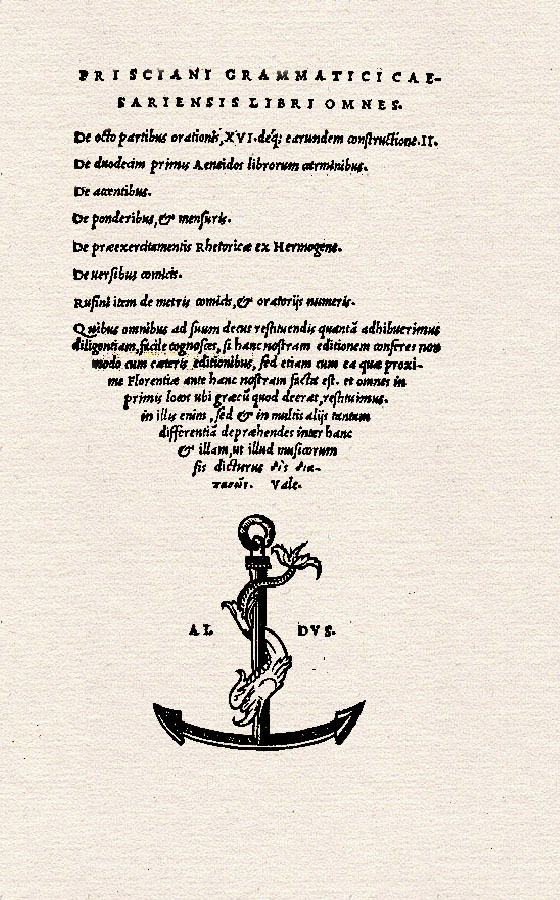 PRISCIANI GRAMMATICI CAE-
SARIENSIS LIBRI OMNES.
De octo partibus orationis, XVI. déq; earundem constructione. II.
De duodecim primis Aeneidos librorum carminibus.
De accentibus.
De ponderibus, & mensuris.
De præexercitamentis Rhetoricæ ex Hermogene.
De uersibus comicis.
Rufini item de metris comicis, & oratorijs numeris.
Quibus omnibus ad suum decus restituendis quantā adhibuerimus
diligentiam, facile cognosces, si hanc nostram editionem conferes non
modo cum cæteris editionibus, sed etiam cum ea quæ proxi-
me Florentiæ ante hanc nostram facta est. et omnes in
primis locos ubi græcū quod deerat, restituimus.
in illis enim, sed & in multis alijs tantam
differentiā depræhendes inter hanc
& illam, ut illud musicorum
sis dicturus δὶς δια-
πασῶν. Vale.
AL DVS.